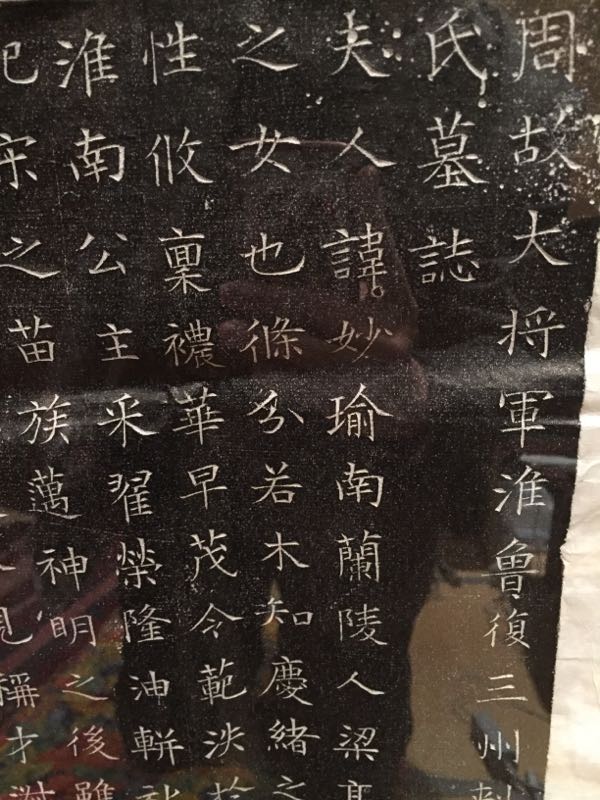 周故大將軍淮魯復三州刺
氏墓誌
夫人諱妙瑜南蘭陵人梁
之女也條分若木知慶緒之
性攸稟禯華早茂令範泱於
淮南公主采翟榮隆油軿
公族邁神明之後雖
宋之苗
見稱才淑